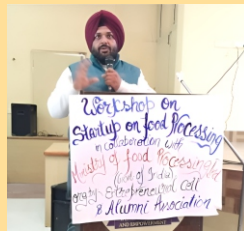 Workshop on
Startup on food Processing
in collaboration with
Ministry of food Processing
(Govt of India)
org by Entrepreneurial Cell
& Alumni Association
AND EMPOWERMENT